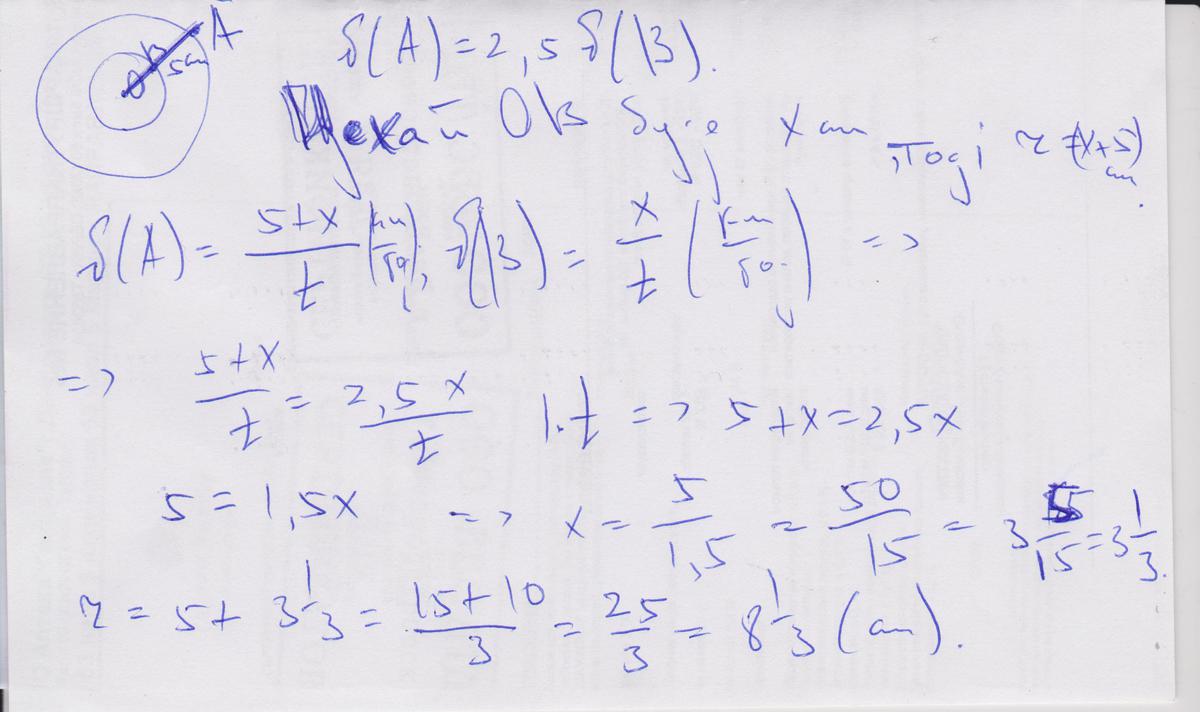 A
B
O
5 см
υ(A) = 2,5 υ(B).
Нехай OB буде x см, тоді r = (x+5) см.
υ(A) = (5+x)/t (км/год); υ(B) = x/t (км/год) =>
=> (5+x)/t = 2,5x/t |·t => 5+x=2,5x
5 = 1,5x => x = 5/1,5 = 50/15 = 3 5/15 = 3 1/3.
r = 5 + 3 1/3 = (15+10)/3 = 25/3 = 8 1/3 (см).